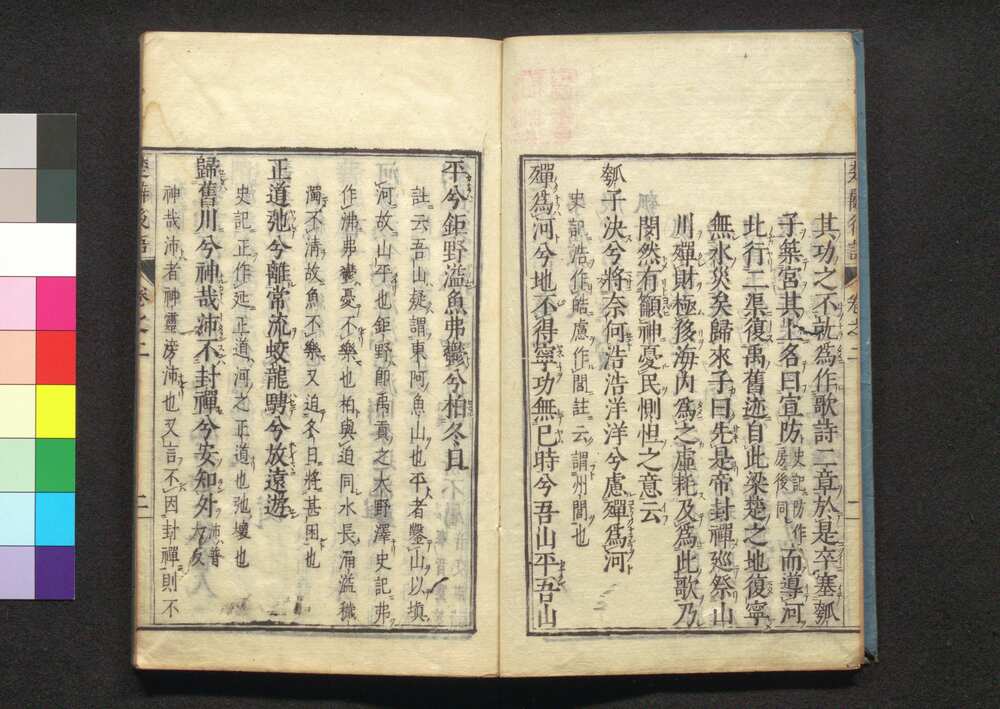 其功之不就爲作歌詩二章於是卒塞瓠
子築宮其上名曰宣防史記防作房後同而導河
此行二渠復禹舊迹自此梁楚之地復寧
無水災矣歸來子曰先是帝封禪巡祭山
川殫財極侈海內爲之虛耗及爲此歌乃
閔然有籲神憂民惻怛之意云
瓠子決兮將奈何浩浩洋洋兮慮殫爲河
史記浩作皓慮作閭註云謂州閭也
殫爲河兮地不得寧功無已時兮吾山平吾山
平兮鉅野溢魚弗鬱兮柏冬日
註云吾山疑謂東阿魚山也平者鑿山以填
河故山平也鉅野卽禹貢之大野澤史記弗
作沸弗鬱憂不樂也柏與迫同水長涌溢穢
濁不淸故魚不樂又迫冬日將甚困也
正道弛兮離常流蛟龍騁兮放遠遊
史記正作延正道河之正道也弛壞也
歸舊川兮神哉沛不封禪兮安知外沛普大反
神哉沛者神靈滂沛也又言不因封禪則不
楚辭後語 卷之二 二